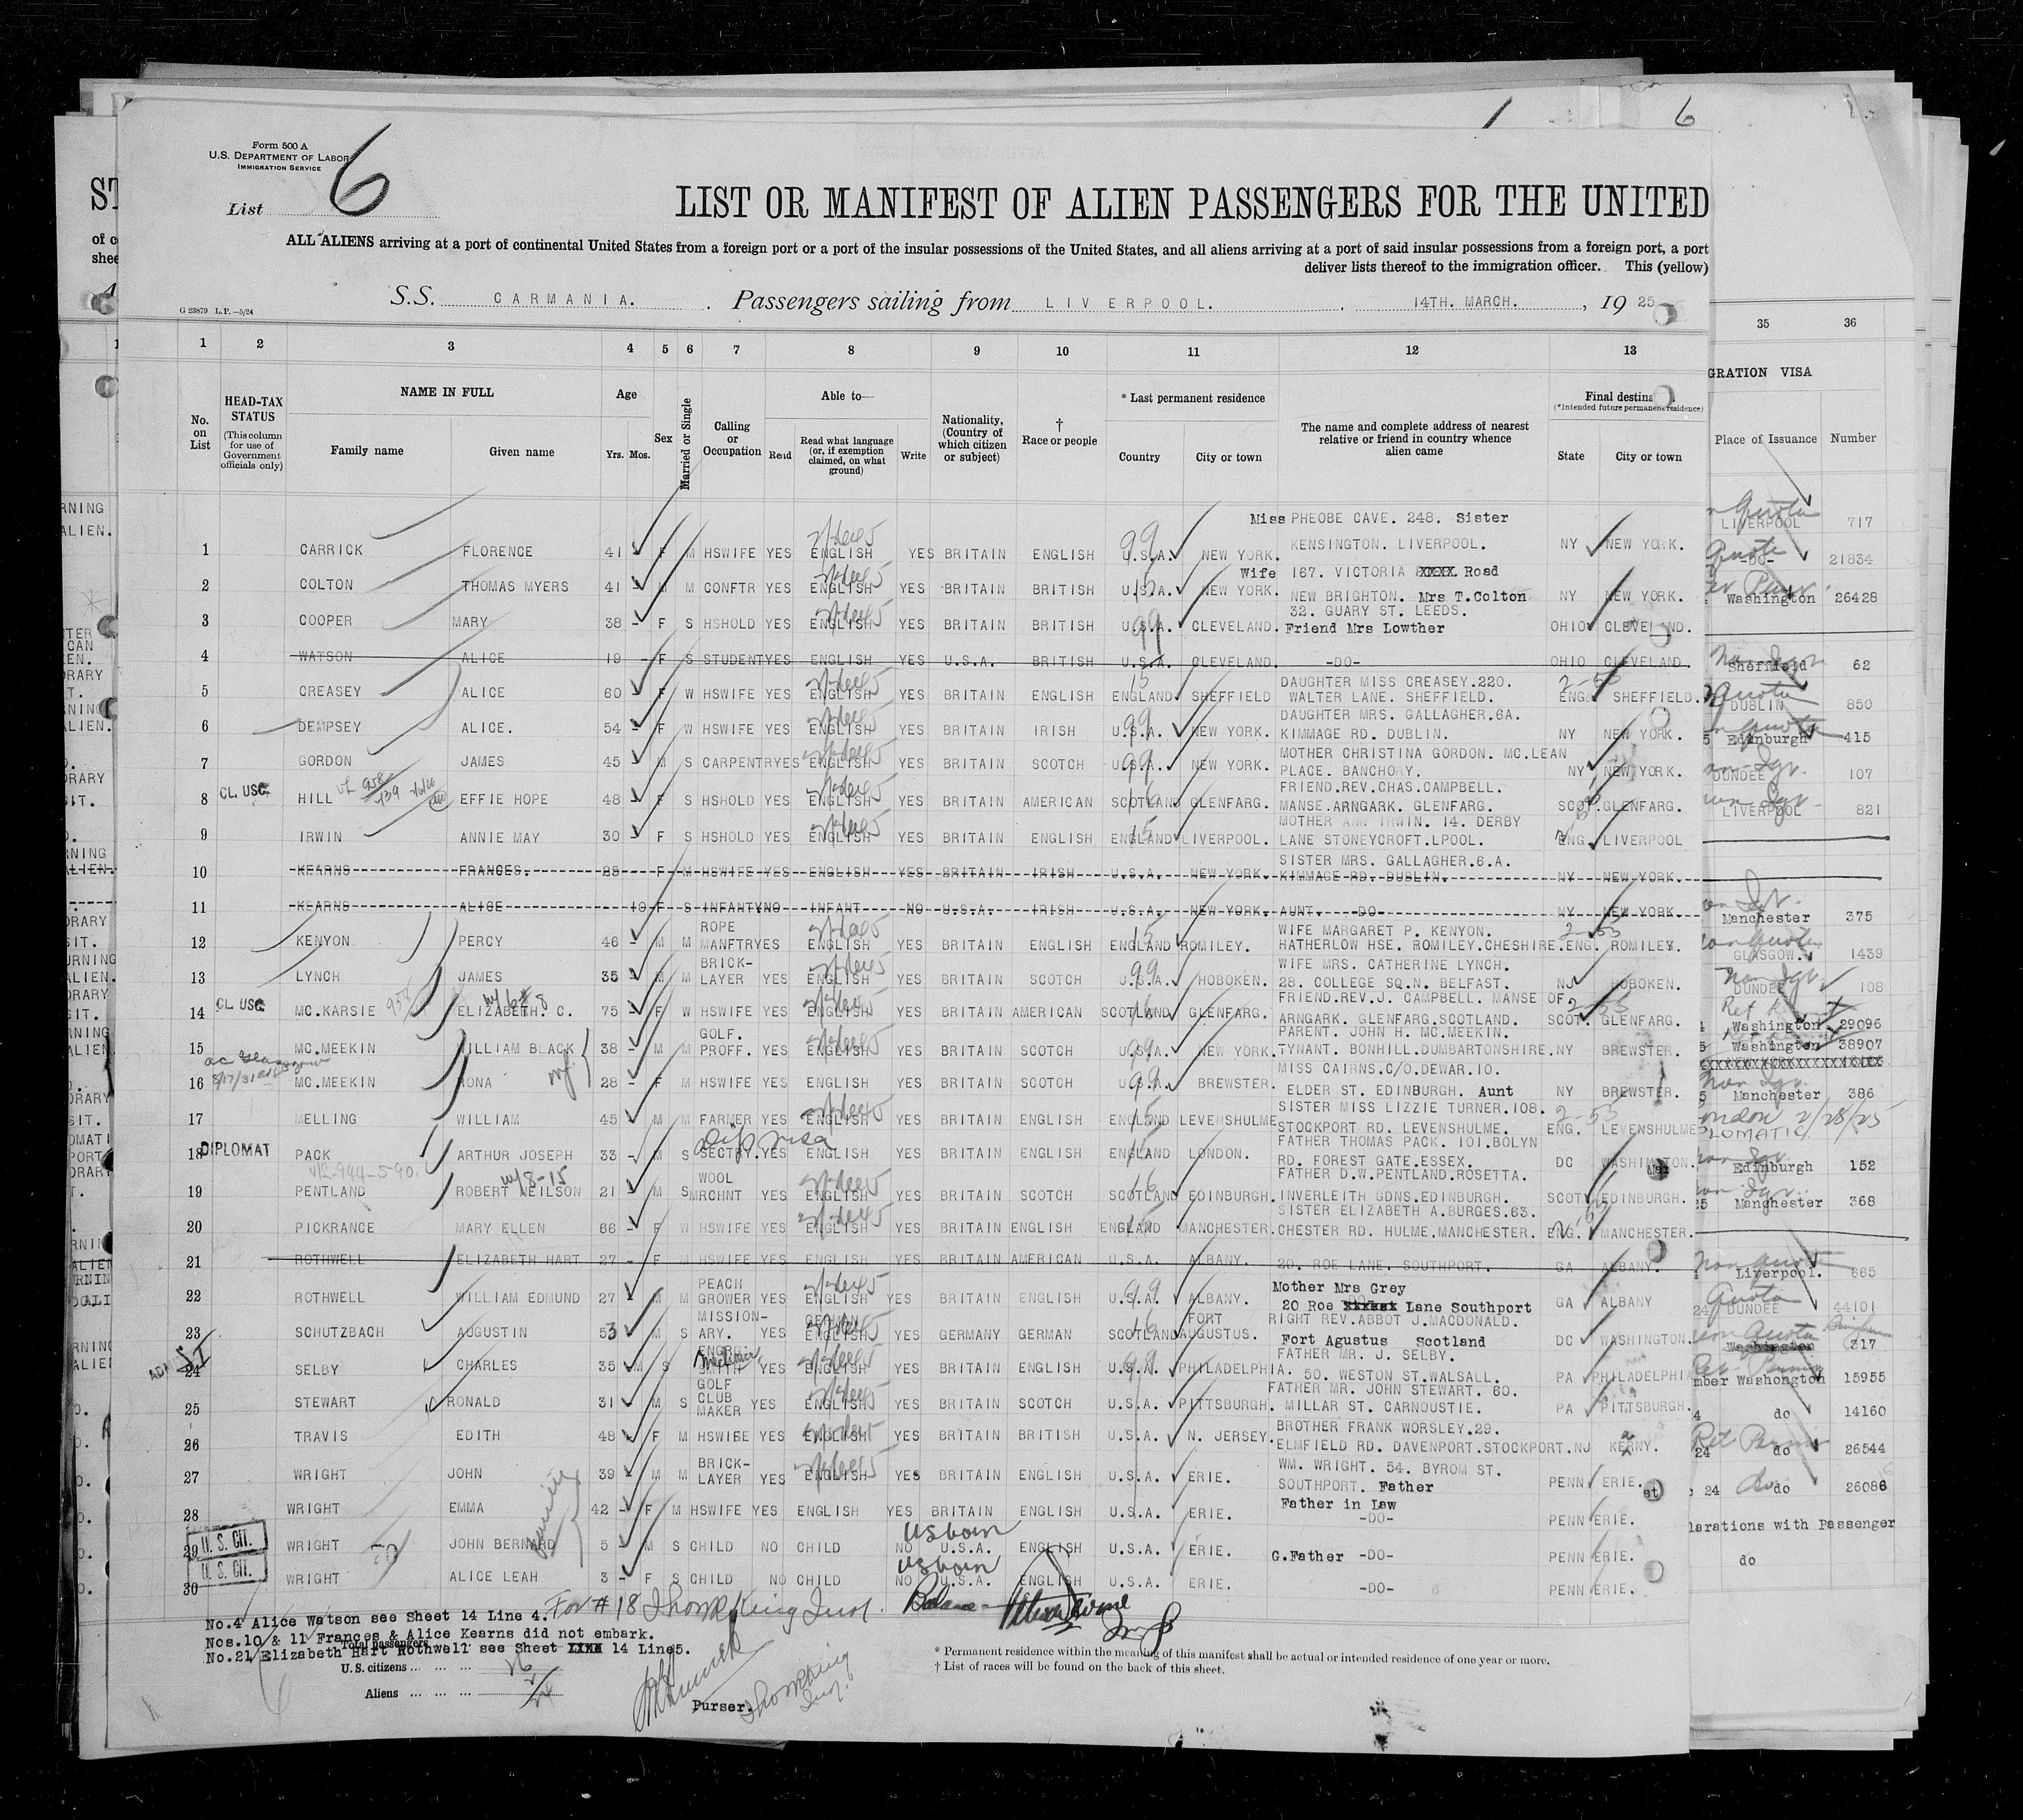 1 6
Form 500 A
U.S. DEPARTMENT OF LABOR
IMMIGRATION SERVICE
List 6
LIST OR MANIFEST OF ALIEN PASSENGERS FOR THE UNITED
ALL ALIENS arriving at a port of continental United States from a foreign port or a port of the insular possessions of the United States, and all aliens arriving at a port of said insular possessions from a foreign port, a port
deliver lists thereof to the immigration officer. This (yellow)
S.S. CARMANIA. Passengers sailing from LIVERPOOL. 14TH. MARCH. , 19 25
G 23879 L.P.—5/24
1 2 3 4 5 6 7 8 9 10 11 12 13 35 36
No. on List
HEAD-TAX STATUS
(This column for use of Government officials only)
NAME IN FULL
Family name Given name
Age
Yrs. Mos.
Sex
Married or Single
Calling or Occupation
Able to—
Read Read what language (or, if exemption claimed, on what ground) Write
Nationality, (Country of which citizen or subject)
† Race or people
* Last permanent residence
Country City or town
The name and complete address of nearest relative or friend in country whence alien came
Final destina
(*Intended future permanent residence)
State City or town
GRATION VISA
Place of Issuance Number
Miss PHEOBE CAVE. 248. Sister
1 CARRICK FLORENCE 41 F M HSWIFE YES ENGLISH YES BRITAIN ENGLISH U.S.A. NEW YORK. KENSINGTON. LIVERPOOL. NY NEW YORK. LIVERPOOL 717
Wife 167. VICTORIA XXXX Road
2 COLTON THOMAS MYERS 41 M M CONFTR YES ENGLISH YES BRITAIN BRITISH U.S.A. NEW YORK. NEW BRIGHTON. Mrs T.Colton NY NEW YORK. -DO- 21834
32. GUARY ST. LEEDS.
3 COOPER MARY 38 - F S HSHOLD YES ENGLISH YES BRITAIN BRITISH U.S.A. CLEVELAND. Friend Mrs Lowther OHIO CLEVELAND. Washington 26428
4 WATSON ALICE 19 - F S STUDENT YES ENGLISH YES U.S.A. BRITISH U.S.A. CLEVELAND. -DO- OHIO CLEVELAND
DAUGHTER MISS CREASEY.220.
5 CREASEY ALICE 60 F W HSWIFE YES ENGLISH YES BRITAIN ENGLISH ENGLAND SHEFFIELD WALTER LANE. SHEFFIELD. ENG. SHEFFIELD. Sheffield 62
DAUGHTER MRS. GALLAGHER.6A.
6 DEMPSEY ALICE. 54 - F W HSWIFE YES ENGLISH YES BRITAIN IRISH U.S.A. NEW YORK. KIMMAGE RD. DUBLIN. NY NEW YORK. DUBLIN 850
MOTHER CHRISTINA GORDON. MC.LEAN
7 GORDON JAMES 45 M S CARPENTR YES ENGLISH YES BRITAIN SCOTCH U.S.A. NEW YORK. PLACE. BANCHORY. NY NEW YORK. Edinburgh 415
FRIEND.REV.CHAS.CAMPBELL.
8 CL. USC. HILL EFFIE HOPE 48 F S HSHOLD YES ENGLISH YES BRITAIN AMERICAN SCOTLAND GLENFARG. MANSE.ARNGARK. GLENFARG. SCOT. GLENFARG. DUNDEE 107
MOTHER ANN IRWIN. 14. DERBY
9 IRWIN ANNIE MAY 30 F S HSHOLD YES ENGLISH YES BRITAIN ENGLISH ENGLAND LIVERPOOL. LANE STONEYCROFT.LPOOL. ENG. LIVERPOOL LIVERPOOL 821
SISTER MRS. GALLAGHER.6.A.
10 KEARNS FRANCES. F M HSWIFE YES ENGLISH YES BRITAIN IRISH U.S.A. NEW YORK. KIMMAGE RD. DUBLIN. NY NEW YORK.
11 KEARNS ALICE 10 F S INFANTY NO INFANT NO U.S.A. IRISH U.S.A. NEW YORK. AUNT. DO NY NEW YORK.
WIFE MARGARET P. KENYON.
12 KENYON PERCY 46 - M M ROPE MANFTR YES ENGLISH YES BRITAIN ENGLISH ENGLAND ROMILEY. HATHERLOW HSE. ROMILEY.CHESHIRE. ENG. ROMILEY. Manchester 375
WIFE MRS. CATHERINE LYNCH.
13 LYNCH JAMES 35 - M M BRICK-LAYER YES ENGLISH YES BRITAIN SCOTCH U.S.A. HOBOKEN. 28. COLLEGE SQ.N. BELFAST. NJ HOBOKEN. GLASGOW. 1439
FRIEND.REV.J. CAMPBELL. MANSE OF
14 CL. USC. MC.KARSIE ELIZABETH. C. 75 - F W HSWIFE YES ENGLISH YES BRITAIN AMERICAN SCOTLAND GLENFARG. ARNGARK. GLENFARG.SCOTLAND. SCOT. GLENFARG. DUNDEE 108
PARENT. JOHN H. MC.MEEKIN.
15 MC.MEEKIN WILLIAM BLACK 38 - M M GOLF. PROFF. YES ENGLISH YES BRITAIN SCOTCH U.S.A. NEW YORK. TYNANT. BONHILL.DUMBARTONSHIRE. NY BREWSTER. Washington 29096
MISS CAIRNS.C/O.DEWAR.10.
16 MC.MEEKIN RONA 28 - F M HSWIFE YES ENGLISH YES BRITAIN SCOTCH U.S.A. BREWSTER. ELDER ST. EDINBURGH. Aunt NY BREWSTER. Washington 38907
SISTER MISS LIZZIE TURNER.108.
17 MELLING WILLIAM 45 M M FARMER YES ENGLISH YES BRITAIN ENGLISH ENGLAND LEVENSHULME STOCKPORT RD. LEVENSHULME. ENG. LEVENSHULME Manchester 386
FATHER THOMAS PACK. 101.BOLYN
18 DIPLOMAT PACK ARTHUR JOSEPH 33 - M S SECTRY. YES ENGLISH YES BRITAIN ENGLISH ENGLAND LONDON. RD. FOREST GATE.ESSEX. DC WASHINGTON. London 2/28/25
FATHER D.W.PENTLAND.ROSETTA.
19 PENTLAND ROBERT NEILSON 21 M S WOOL MRCHNT YES ENGLISH YES BRITAIN SCOTCH SCOTLAND EDINBURGH. INVERLEITH GDNS.EDINBURGH. SCOT. EDINBURGH. Edinburgh 152
SISTER ELIZABETH A.BURGES.63.
20 PICKRANCE MARY ELLEN 66 - F W HSWIFE YES ENGLISH YES BRITAIN ENGLISH ENGLAND MANCHESTER. CHESTER RD. HULME.MANCHESTER. ENG. MANCHESTER. Manchester 368
21 ROTHWELL ELIZABETH HART 27 - F M HSWIFE YES ENGLISH YES BRITAIN AMERICAN U.S.A. ALBANY. 20. ROE LANE. SOUTHPORT. GA ALBANY.
Mother Mrs Grey
22 ROTHWELL WILLIAM EDMUND 27 M M PEACH GROWER YES ENGLISH YES BRITAIN ENGLISH U.S.A. ALBANY. 20 Roe Lane Southport GA ALBANY Liverpool. 665
RIGHT REV.ABBOT J.MACDONALD.
23 SCHUTZBACH AUGUSTIN 53 M S MISSION-ARY. YES GERMAN ENGLISH YES GERMANY GERMAN SCOTLAND FORT AUGUSTUS. Fort Agustus Scotland DC WASHINGTON. DUNDEE 44101
FATHER MR. J. SELBY.
24 SELBY CHARLES 35 M S ENGRG. SMITH YES ENGLISH YES BRITAIN ENGLISH U.S.A. PHILADELPHIA. 50. WESTON ST.WALSALL. PA PHILADELPHIA Washington 317
FATHER MR. JOHN STEWART. 60.
25 STEWART RONALD 31 M S GOLF CLUB MAKER YES ENGLISH YES BRITAIN SCOTCH U.S.A. PITTSBURGH. MILLAR ST. CARNOUSTIE. PA PITTSBURGH. mber Washongton 15955
BROTHER FRANK WORSLEY.29.
26 TRAVIS EDITH 48 F M HSWIFE YES ENGLISH YES BRITAIN BRITISH U.S.A. N. JERSEY. ELMFIELD RD. DAVENPORT.STOCKPORT. NJ KERNY. do 14160
WM. WRIGHT. 54. BYROM ST.
27 WRIGHT JOHN 39 M M BRICK-LAYER YES ENGLISH YES BRITAIN ENGLISH U.S.A. ERIE. SOUTHPORT. Father PENN ERIE. 24 do 26544
Father in Law
28 WRIGHT EMMA 42 - F M HSWIFE YES ENGLISH YES BRITAIN ENGLISH U.S.A. ERIE. -DO- PENN ERIE. 24 do 26086
29 U.S. CIT. WRIGHT JOHN BERNARD 5 M S CHILD NO CHILD NO US born U.S.A. ENGLISH U.S.A. ERIE. G.Father -DO- PENN ERIE. larations with Passenger
30 U.S. CIT. WRIGHT ALICE LEAH 3 - F S CHILD NO CHILD NO US born U.S.A. ENGLISH U.S.A. ERIE. -DO- PENN ERIE. do
No.4 Alice Watson see Sheet 14 Line 4. For # 18
Nos.10 & 11 Frances & Alice Kearns did not embark.
No.21 Elizabeth Hart Rothwell see Sheet 14 Line5.
Total passengers
U.S. citizens ... ... ...
Aliens ... ... ...
Purser.
* Permanent residence within the meaning of this manifest shall be actual or intended residence of one year or more.
† List of races will be found on the back of this sheet.